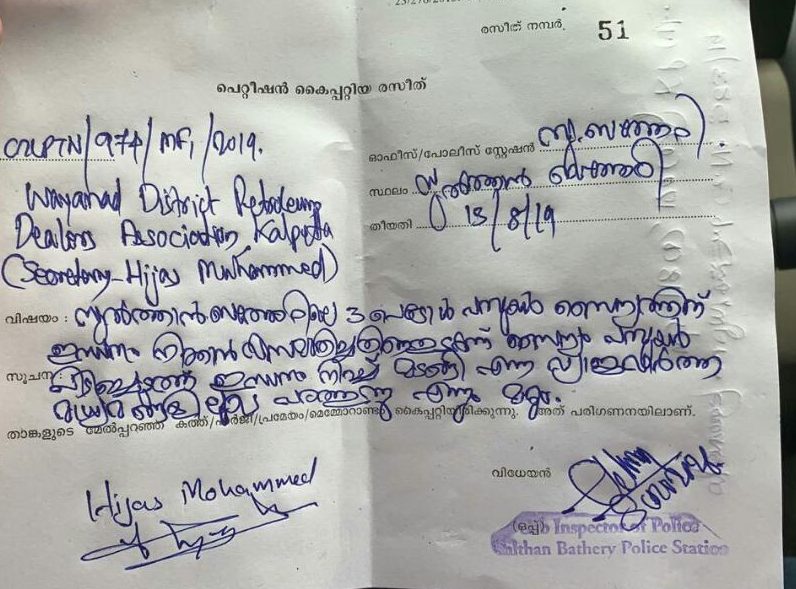 രസീത് നമ്പർ. 51
പെറ്റീഷൻ കൈപ്പറ്റിയ രസീത്
/974/ /2019.
ഓഫീസ്/പോലീസ് സ്റ്റേഷൻ സു.ബത്തേരി
Wayanad District Petroleum
സ്ഥലം സുൽത്താൻ ബത്തേരി
Dealers Association, Kalpetta
തീയതി 15/8/19
(Secretary-Hijas Muhammed)
വിഷയം : സുൽത്താൻബത്തേരിയിലെ 3 പെട്രോൾ പമ്പുകൾ സൈന്യത്തിന്
ഇന്ധനം സൈന്യം പമ്പുകൾ
സൂചന: പിടിച്ചെടുത്ത് ഇന്ധനം നിറച്ച് മടങ്ങി എന്ന വ്യാജവാർത്ത
എന്നും മറ്റും.
താങ്കളുടെ മേൽപ്പറഞ്ഞ കത്ത്/ഹർജി/പ്രമേയം/മെമ്മോറാണ്ടം കൈപ്പറ്റിയിരിക്കുന്നു. അത് പരിഗണനയിലാണ്.
വിധേയൻ
Hijas Mohammed
(ഒപ്പ്)
Sub Inspector of Police
Sulthan Bathery Police Station